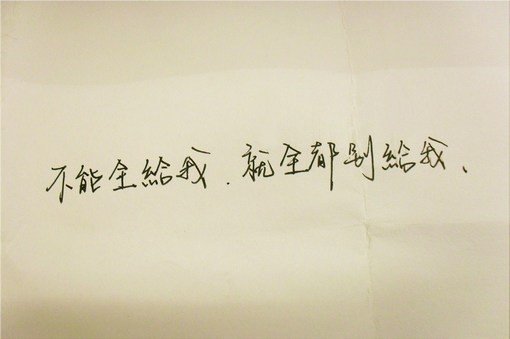 不能全給我.就全都別給我、